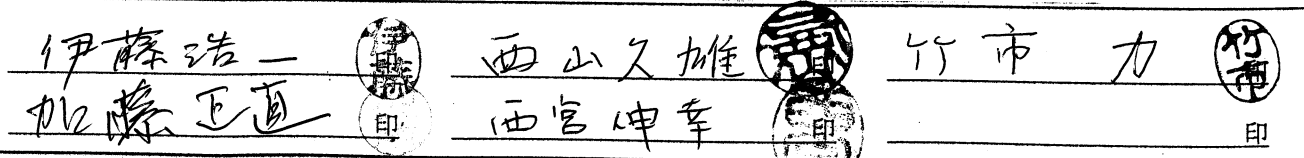 伊藤浩一 印 西山久雄 印 竹市 力 印
加藤正直 印 西宮伸幸 印 印